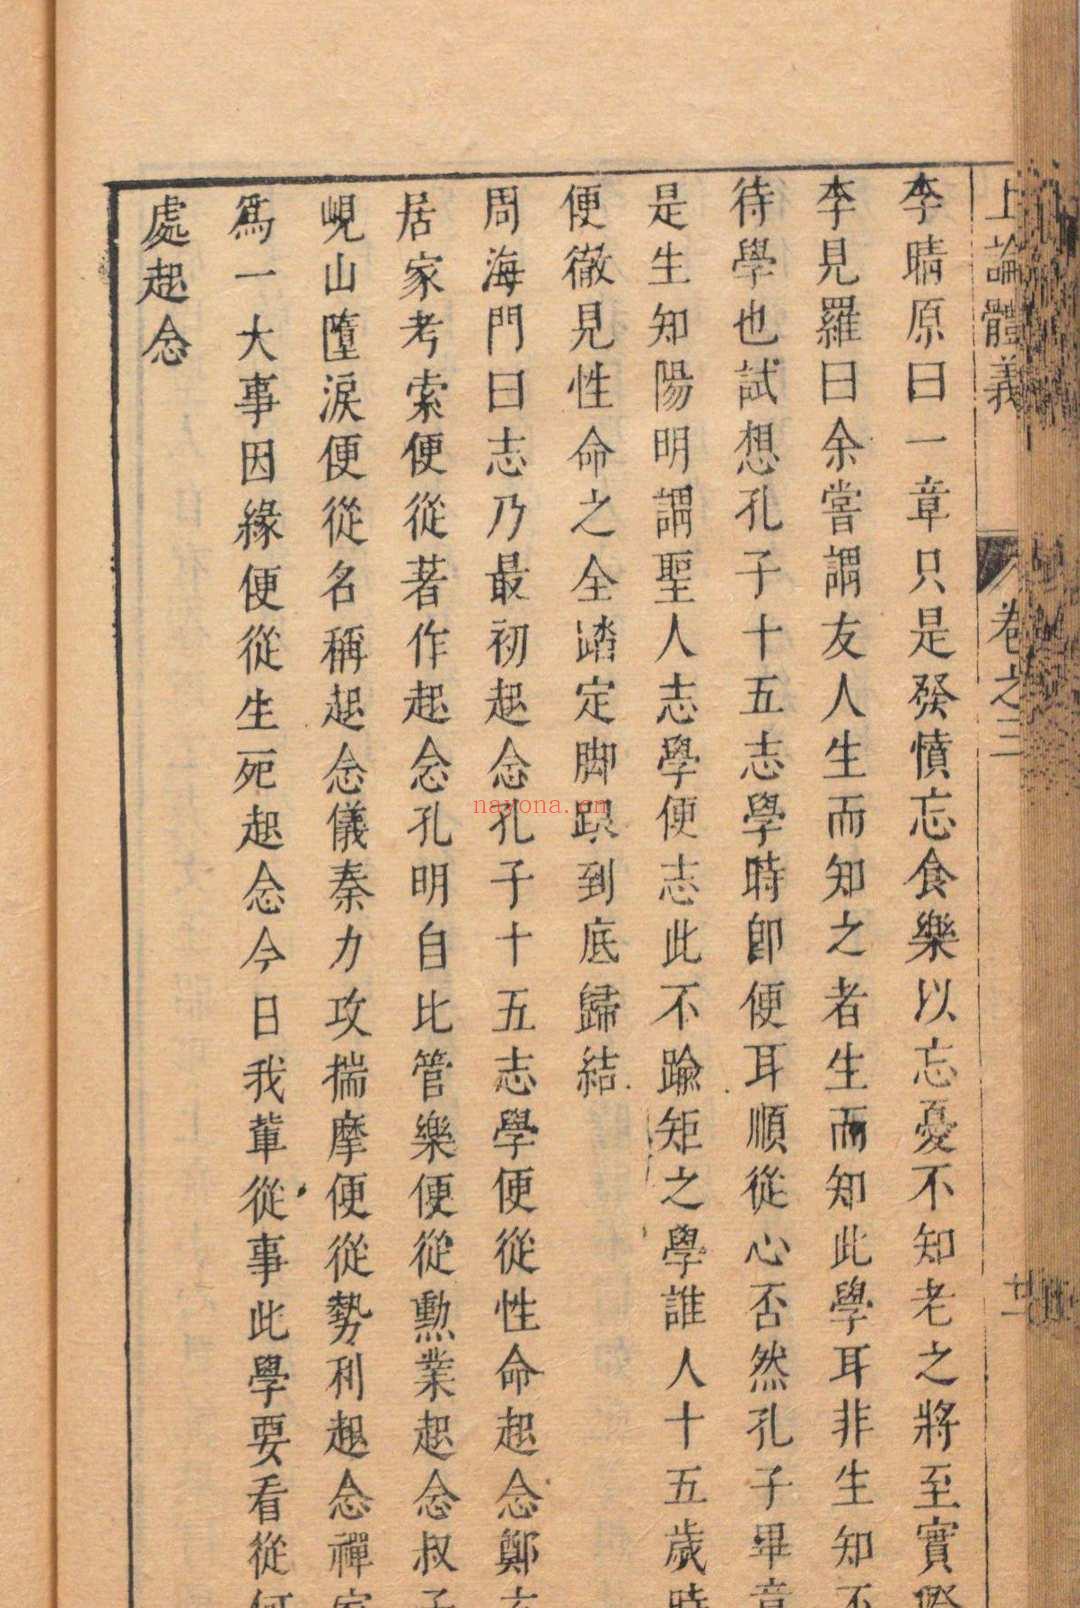 上論體義 卷之三 廿一
李晴原曰一章只是發憤忘食樂以忘憂不知老之將至實
李見羅曰余嘗謂友人生而知之者生而知此學耳非生知不
待學也試想孔子十五志學時卽便耳順從心否然孔子畢竟
是生知陽明謂聖人志學便志此不踰矩之學誰人十五歲時
便徹見性命之全踏定脚跟到底歸結
周海門曰志乃最初起念孔子十五志學便從性命起念鄭玄
居家考索便從著作起念孔明自比管樂便從勲業起念叔子
峴山墮淚便從名稱起念儀秦力攻揣摩便從勢利起念禪家
爲一大事因緣便從生死起念今日我輩從事此學要看從何
處起念
nayona.cn